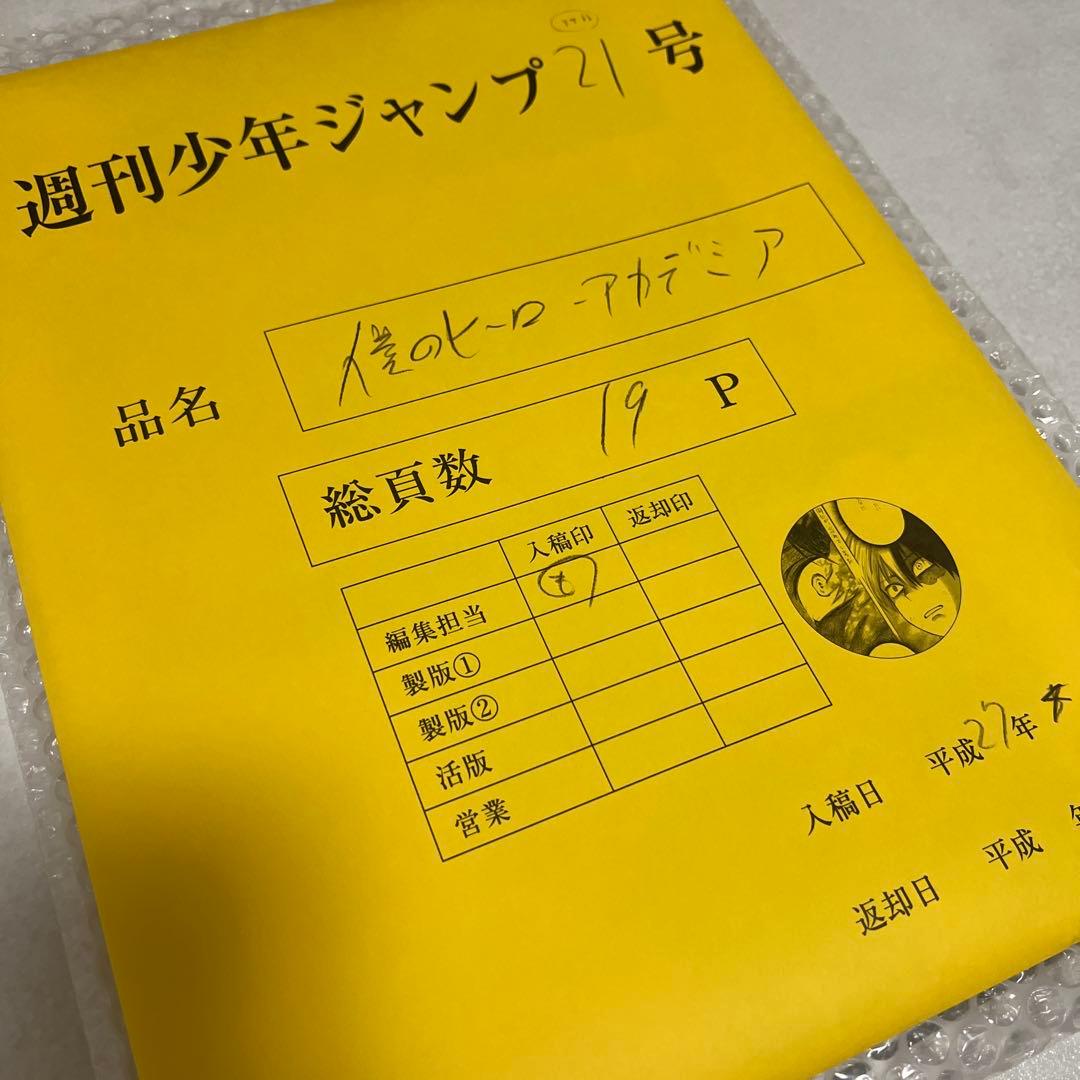 週刊少年ジャンプ21号
品名 僕のヒーローアカデミア
総頁数 19 P
入稿印 返却印
編集担当
製版①
製版②
活版
営業
入稿日 平成27年
返却日 平成 年